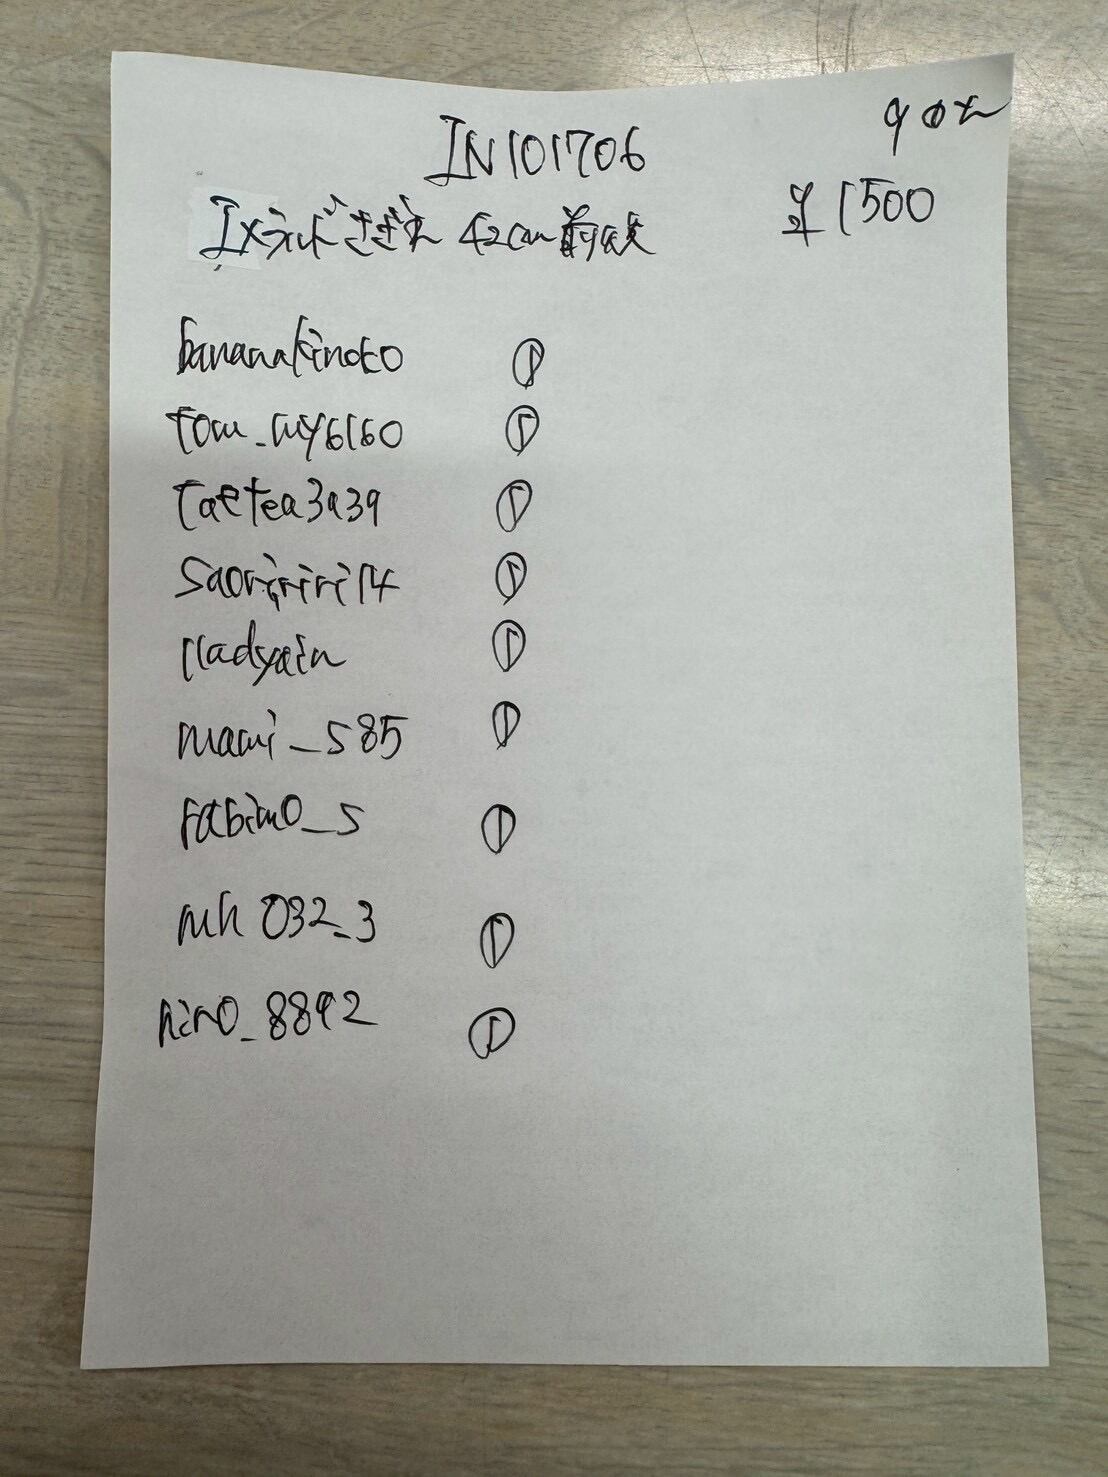 90%
IN101706
¥1500
エメラルドさざれ 42cm前後
bananakinoko ①
tom_my6160 ①
taetea3a39 ①
saoriririri14 ①
lladyain ①
mami_s85 ①
rabimo_s ①
mh032_3 ①
hiro_8892 ①